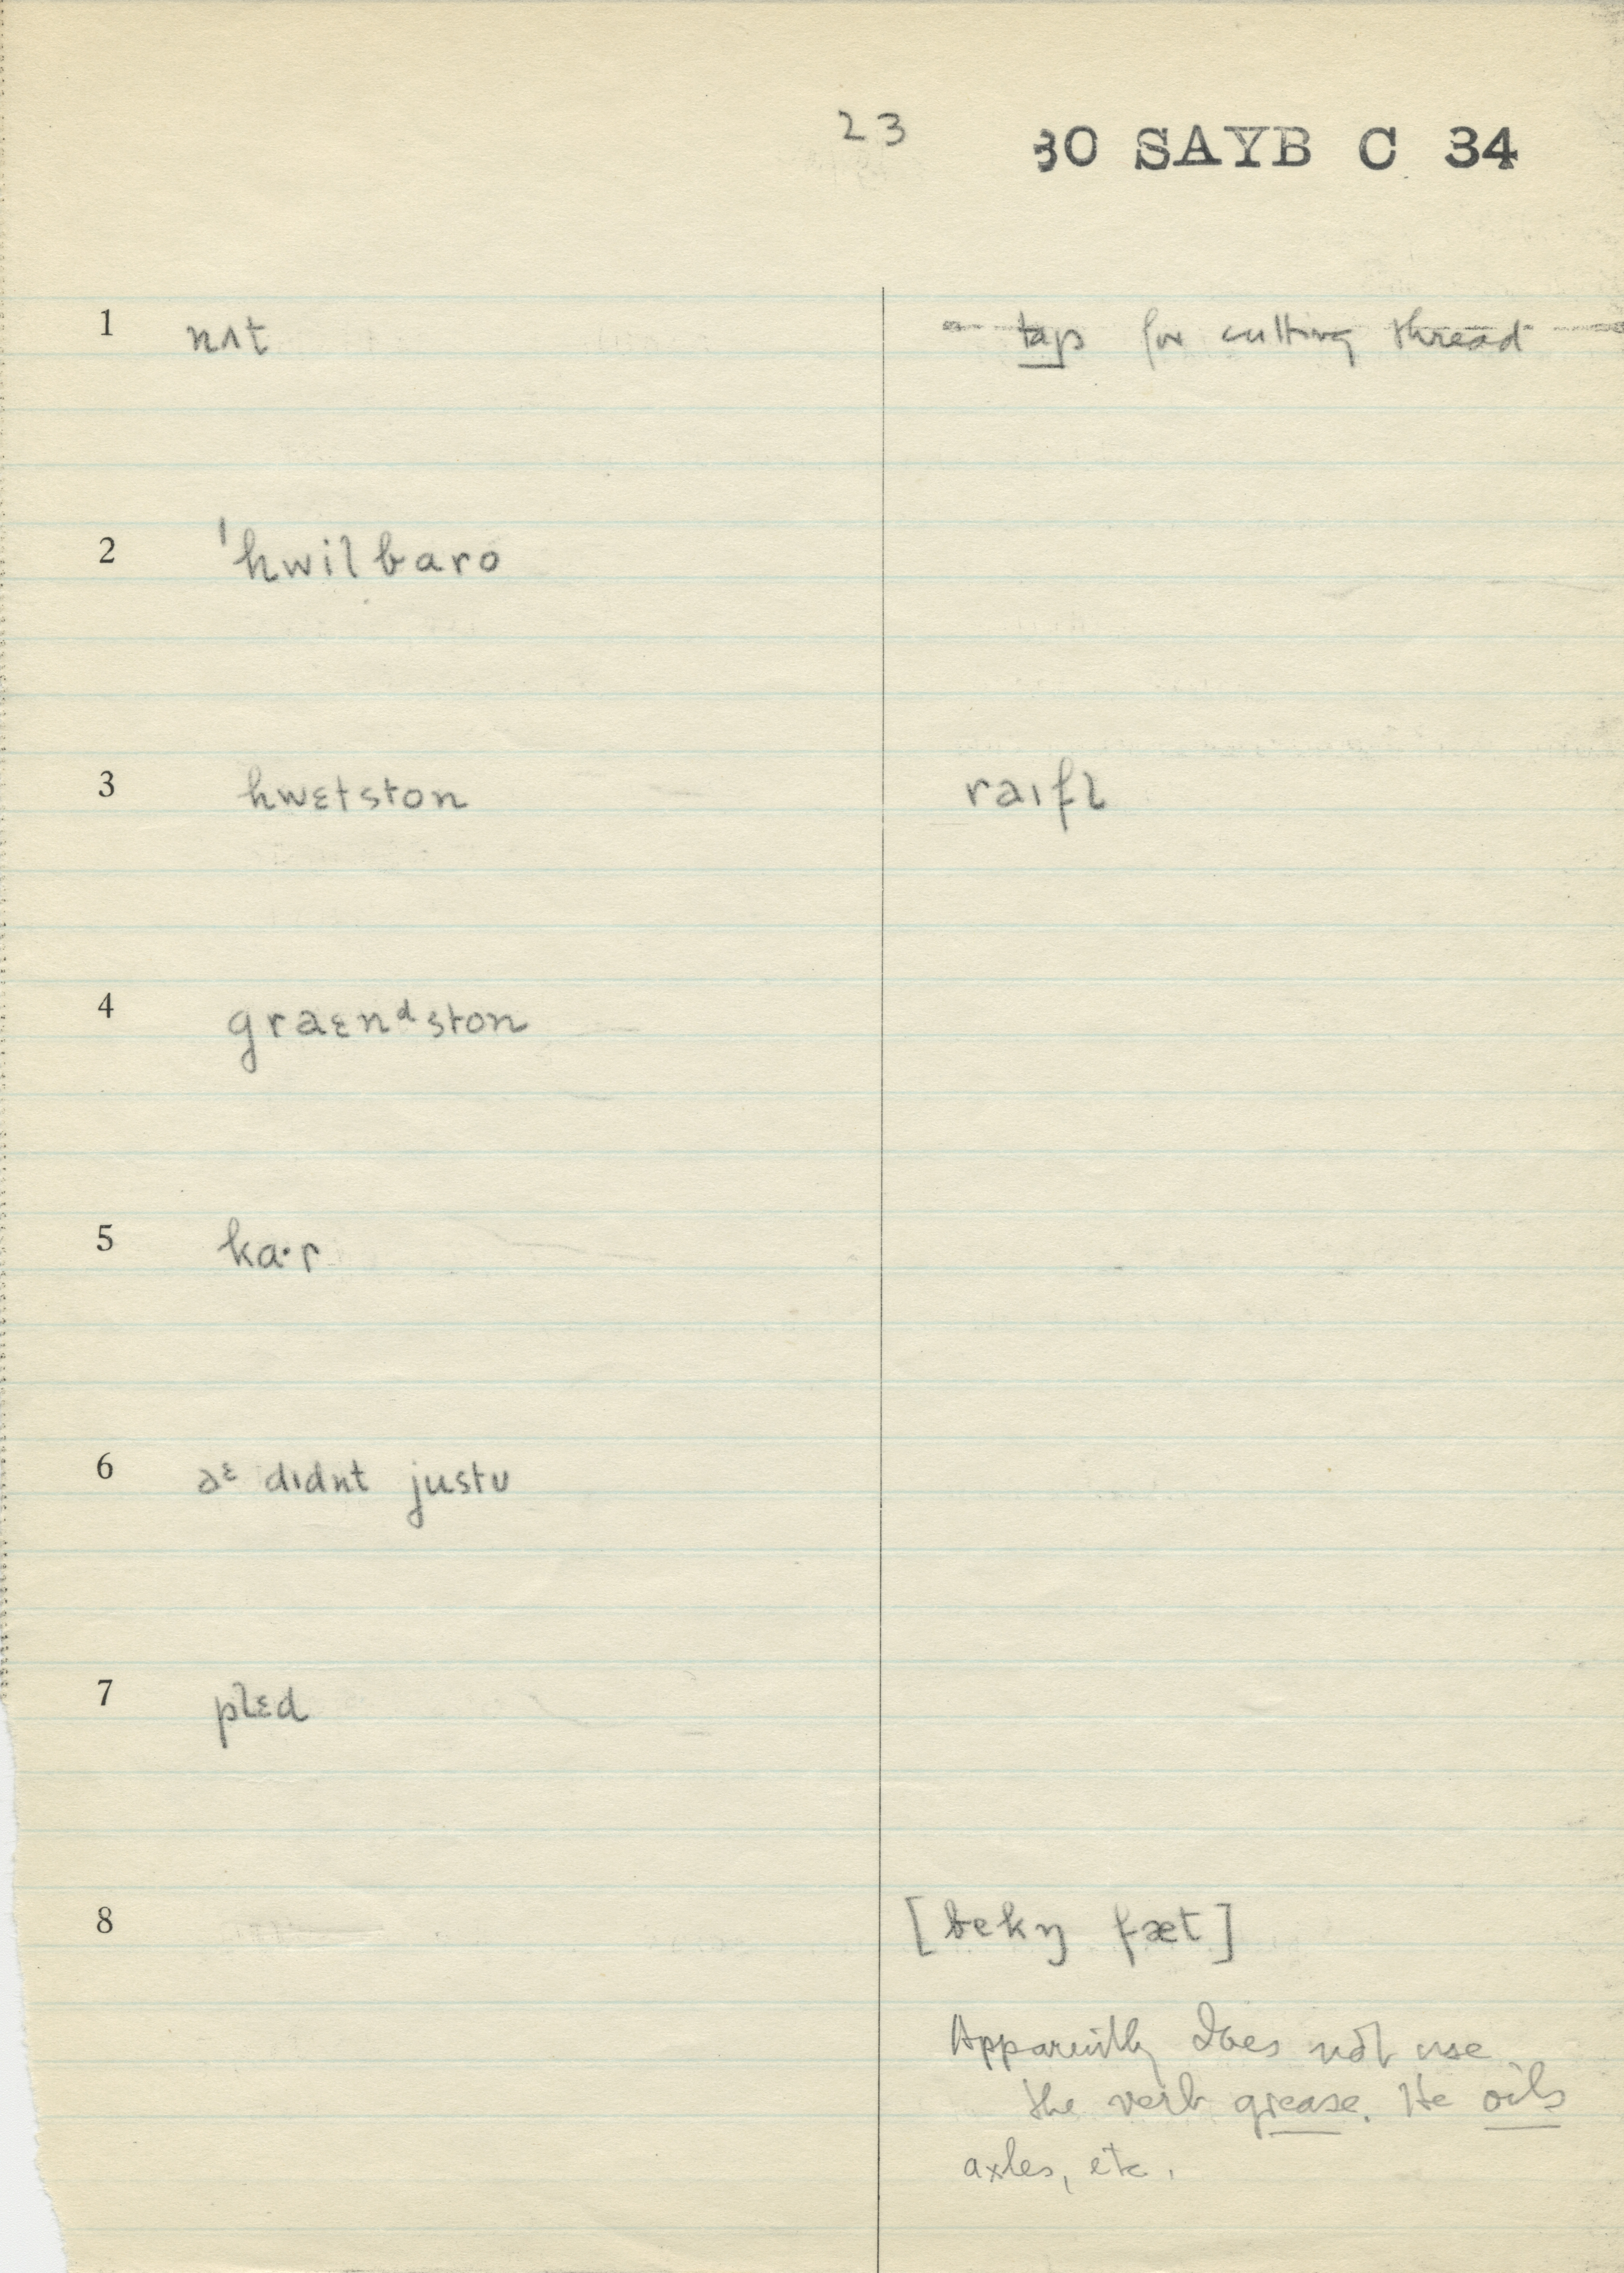 23 30 SAYB C 34
1 nʌt taps for cutting thread
2 ˈhwilbaro
3 hwɛtston raɪfl
4 graɛnᵈston
5 ka·r
6 əᵋ dɪdnt justʊ
7 plɛd
8 [bekŋ fæt]
Apparently does not use
the verb grease. He oils
axles, etc.